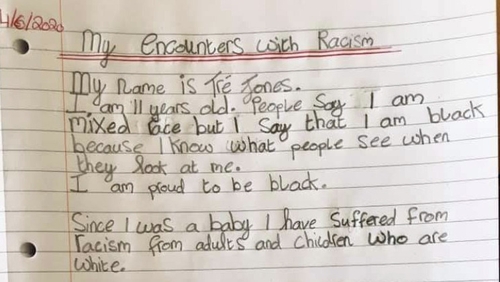 4/6/2020
My encounters with Racism
My name is Tré Jones.
I am 11 years old. People Say I am
mixed race but I Say that I am black
because I know what people see when
they look at me.
I am proud to be black.
Since I was a baby I have Suffered from
racism from adults and children who are
white.